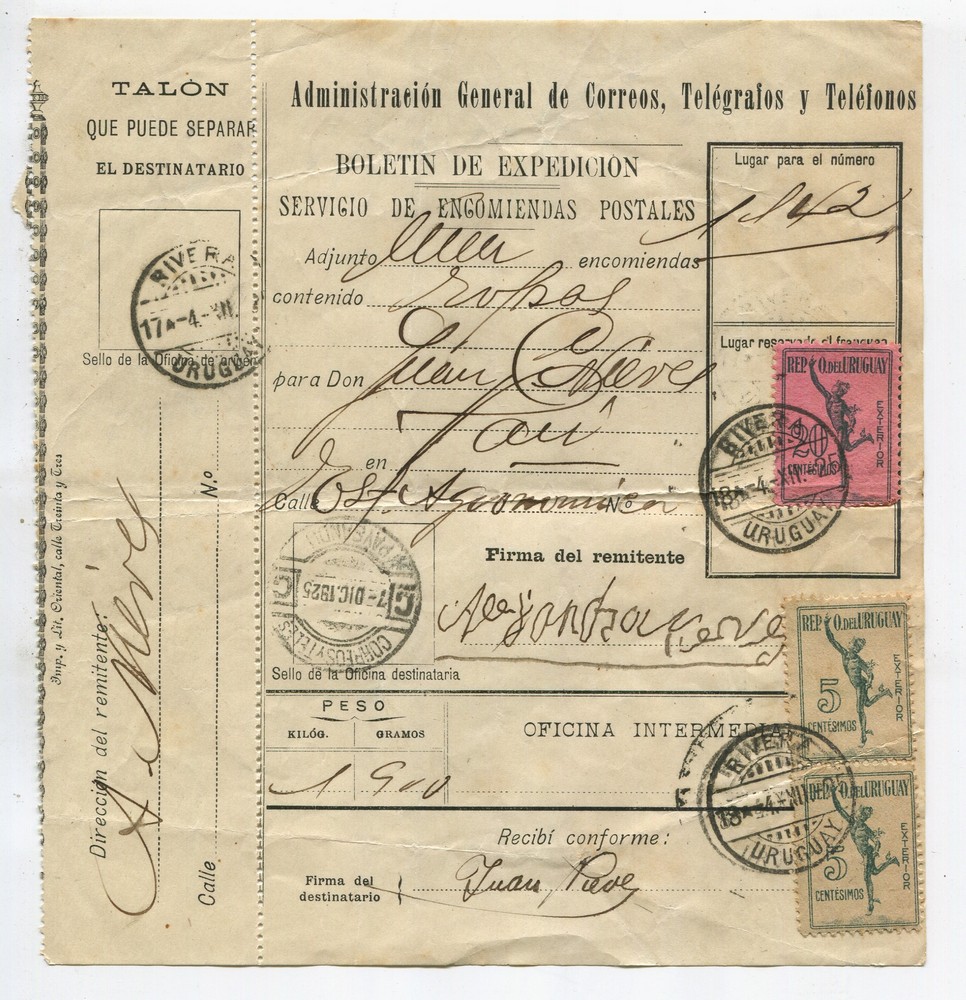 TALÓN
QUE PUEDE SEPARAR
EL DESTINATARIO
RIVERA
17 -4.-XII.
URUGUAY
Sello de la Oficina de origen
Imp. y Lit. Oriental, calle Treinta y Tres
Dirección del remitente:
A
Calle
N.o
Administración General de Correos, Telégrafos y Teléfonos
BOLETIN DE EXPEDICIÓN
SERVICIO DE ENCOMIENDAS POSTALES
Lugar para el número
1842
Adjunto una encomiendas
contenido ropas
Lugar reservado al franqueo
para Don Juan
en
Calle Est. Agronómica N.o
REP. O. DEL URUGUAY
20
CENTÉSIMOS
EXTERIOR
RIVERA
18 -4-XII.-25
URUGUAY
PAYSANDU
C 7-DIC.1925 C
CORREOS Y TELFS
Firma del remitente
Sello de la Oficina destinataria
REP. O. DEL URUGUAY
5
CENTÉSIMOS
EXTERIOR
PESO
KILÓG. GRAMOS
1 900
OFICINA INTERMEDIA
RIVERA
18 -4-XII.-25
URUGUAY
REP. O. DEL URUGUAY
5
CENTÉSIMOS
EXTERIOR
Recibí conforme:
Firma del
destinatario
Juan